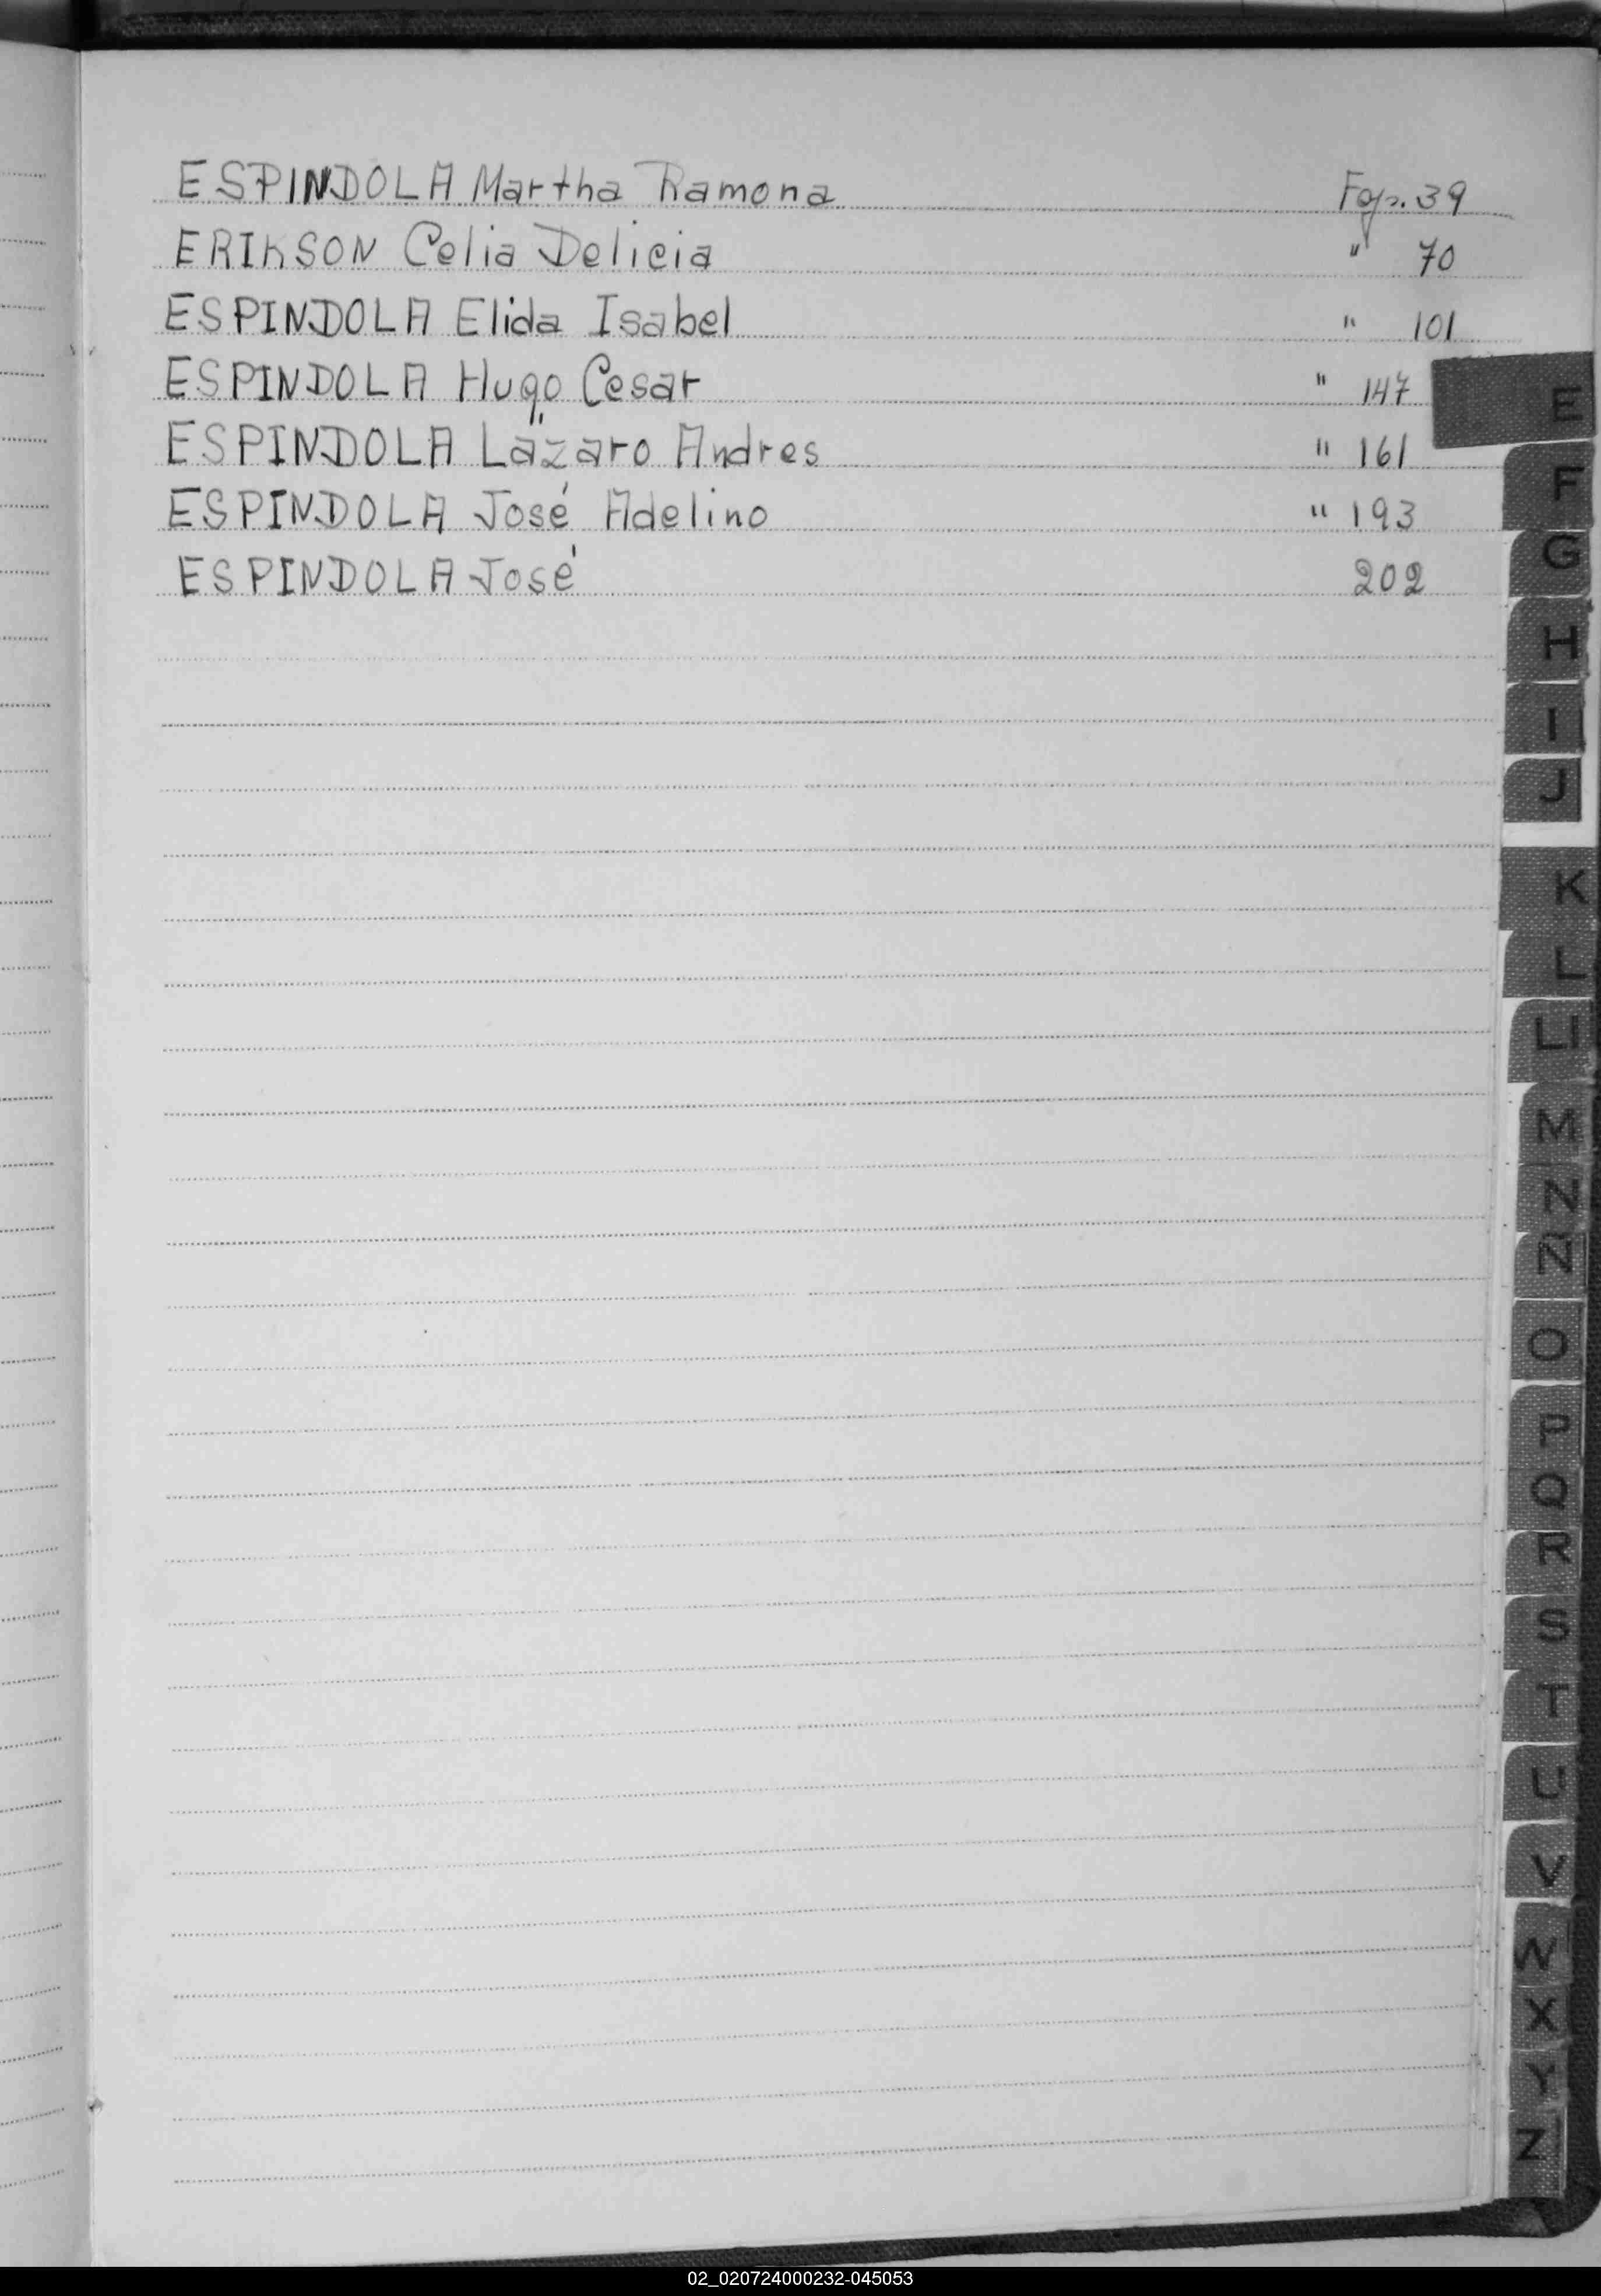 ESPINDOLA Martha Ramona Fojs. 39
ERIKSON Celia Delicia " 70
ESPINDOLA Elida Isabel " 101
ESPINDOLA Hugo Cesar " 147
ESPINDOLA Lázaro Andres " 161
ESPINDOLA José Adelino " 193
ESPINDOLA José 202
E
F
G
H
I
J
K
L
Ll
M
N
Ñ
O
P
Q
R
S
T
U
V
W
X
Y
Z
02_020724000232-045053